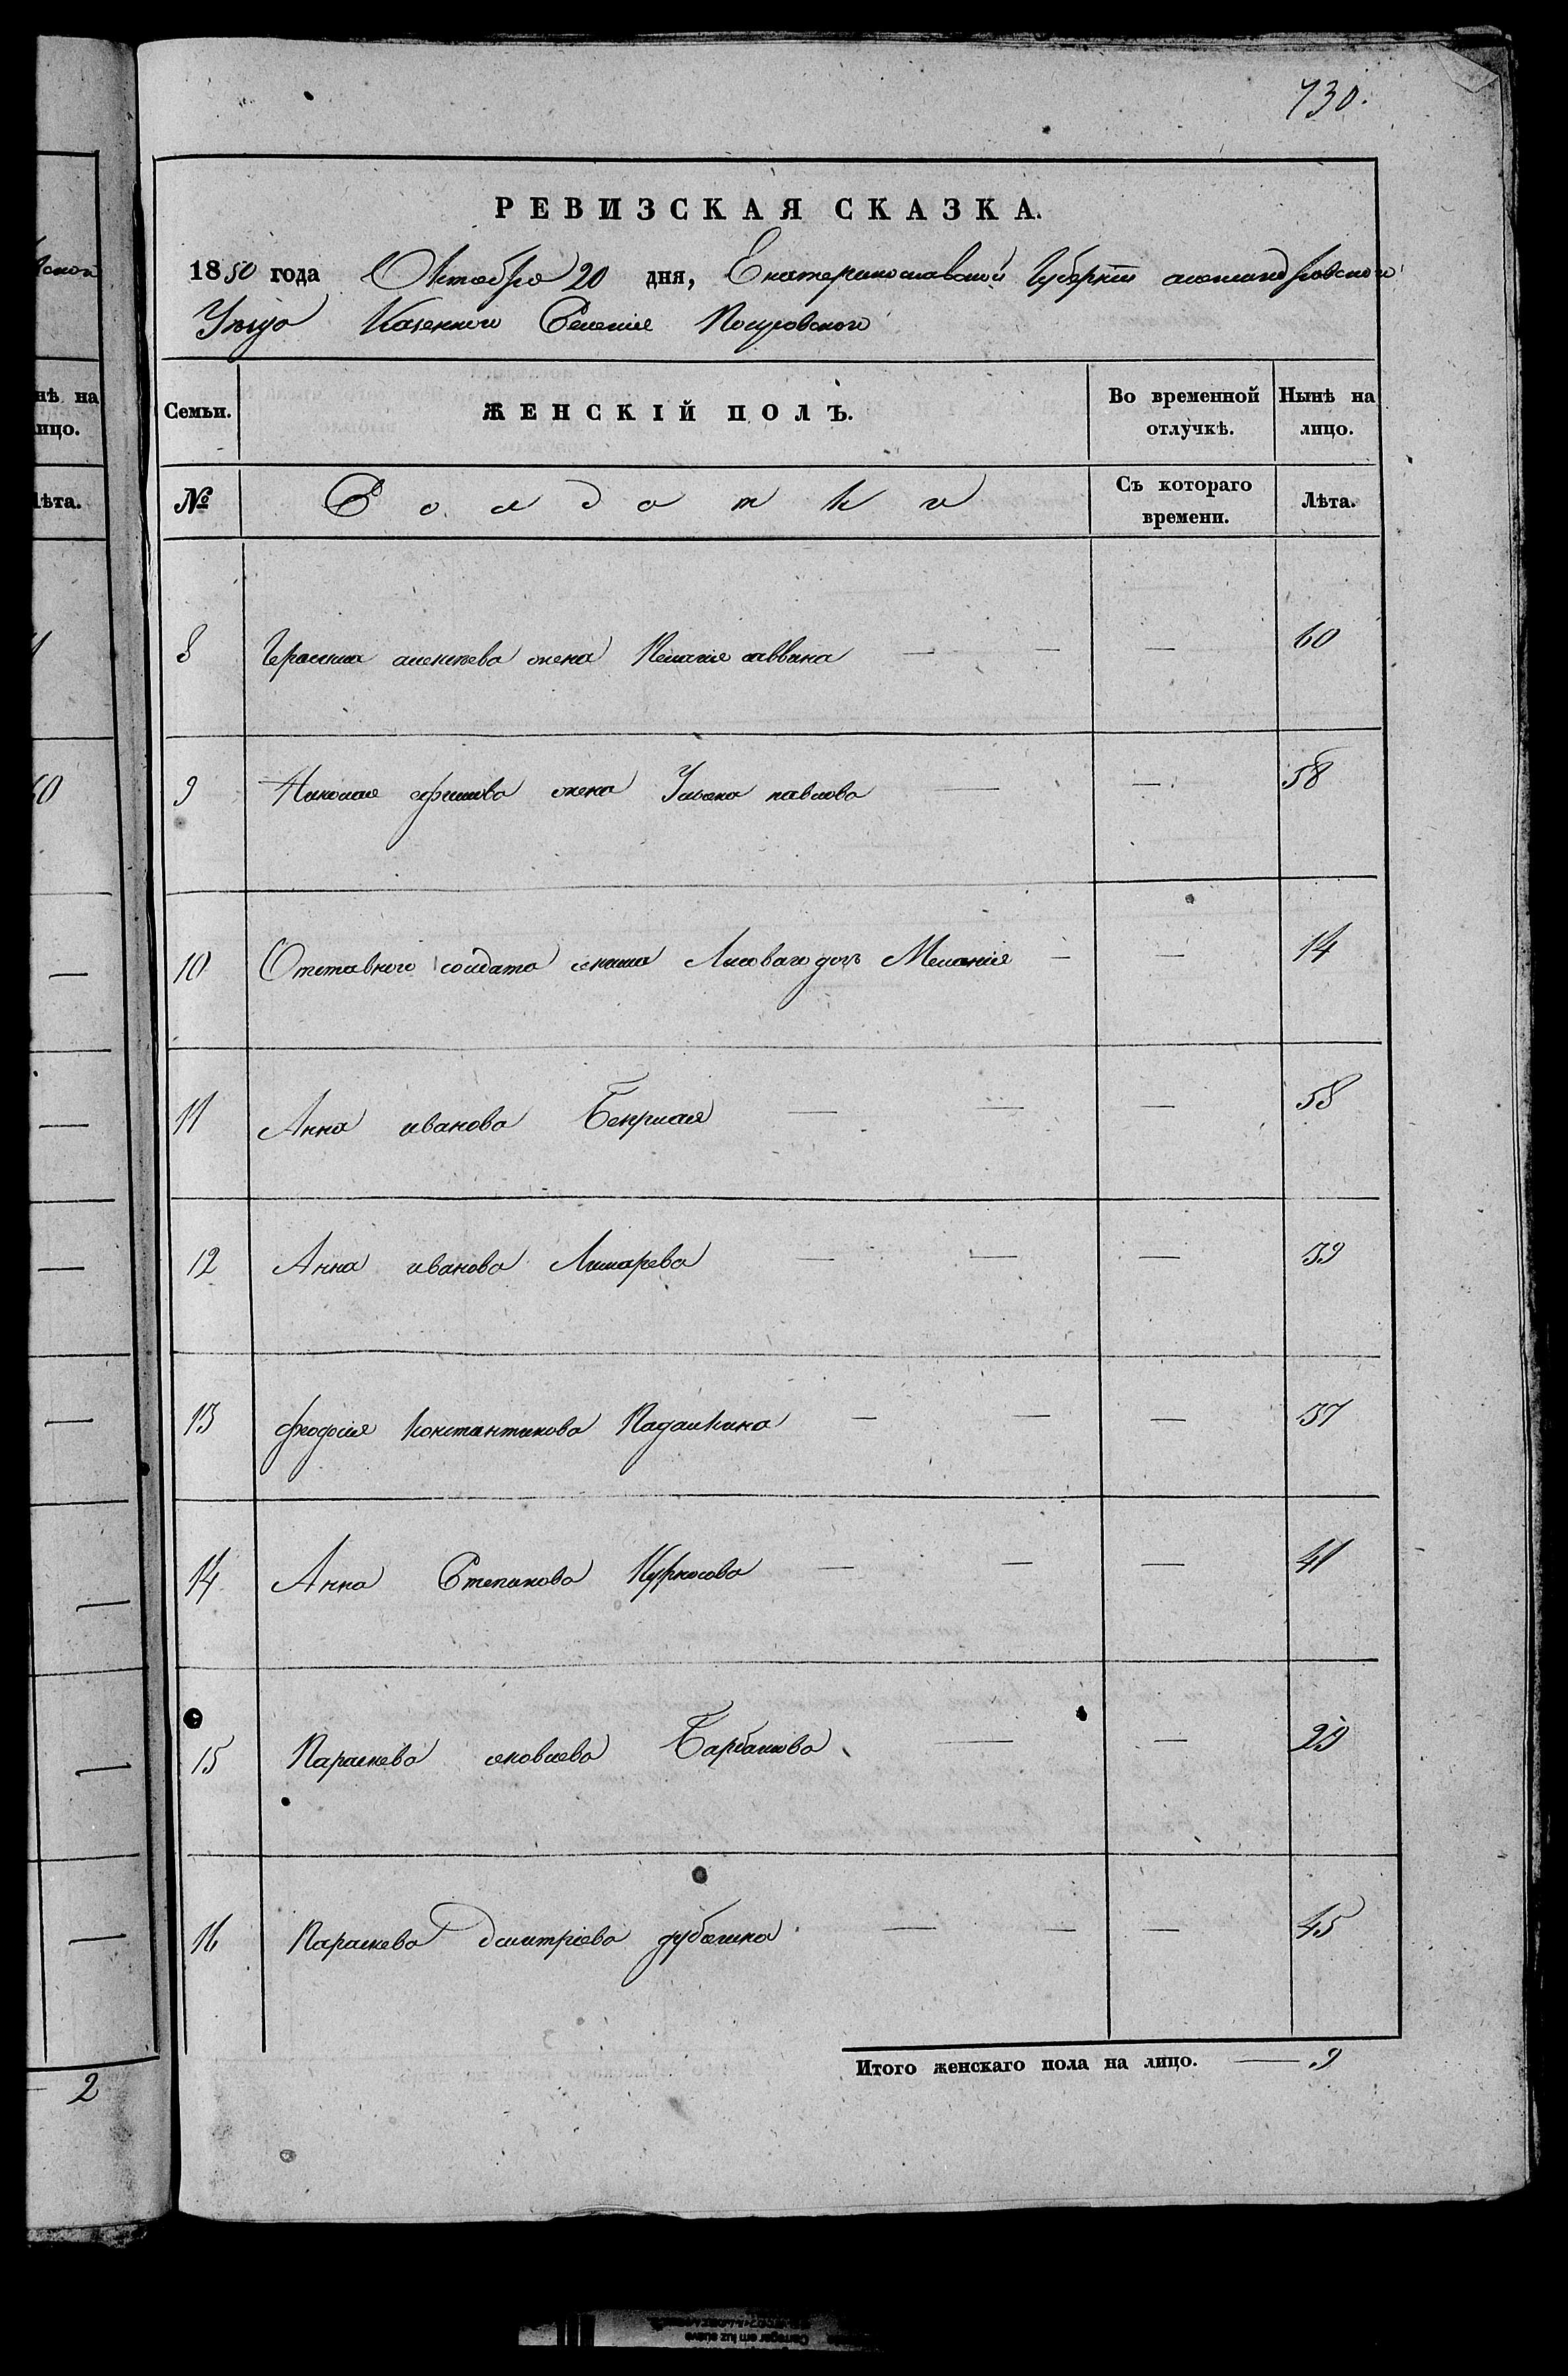 730.
РЕВИЗСКАЯ СКАЗКА.
1850 года Октября 20 дня, Екатеринославской Губернии александровского
Уезда Казенного Селения Покровского
Семьи. ЖЕНСКІЙ ПОЛЪ. Во временной отлучкѣ. Нынѣ на лицо.
№ Солдатки Съ котораго времени. Лѣта.
8 Герасима алексеева жена Пелагия саввина — — — 60
9 Николая ефимова жена Ульяна павлова — — 58
10 Отставного солдата Лисоваго дочь Мелания — — 14
11 Анна иванова — — — 58
12 Анна иванова Лимарева — — — 39
13 феодосия Константинова Падалкина — — — 37
14 Анна Степанова Курносова — — — 41
15 Параскева яковлева — — 29
16 Параскева дмитріева — — — 45
Итого женскаго пола на лицо. — 9
ской
нѣ на
ицо.
лѣта.
60
—
—
—
—
—
—
—
—
2